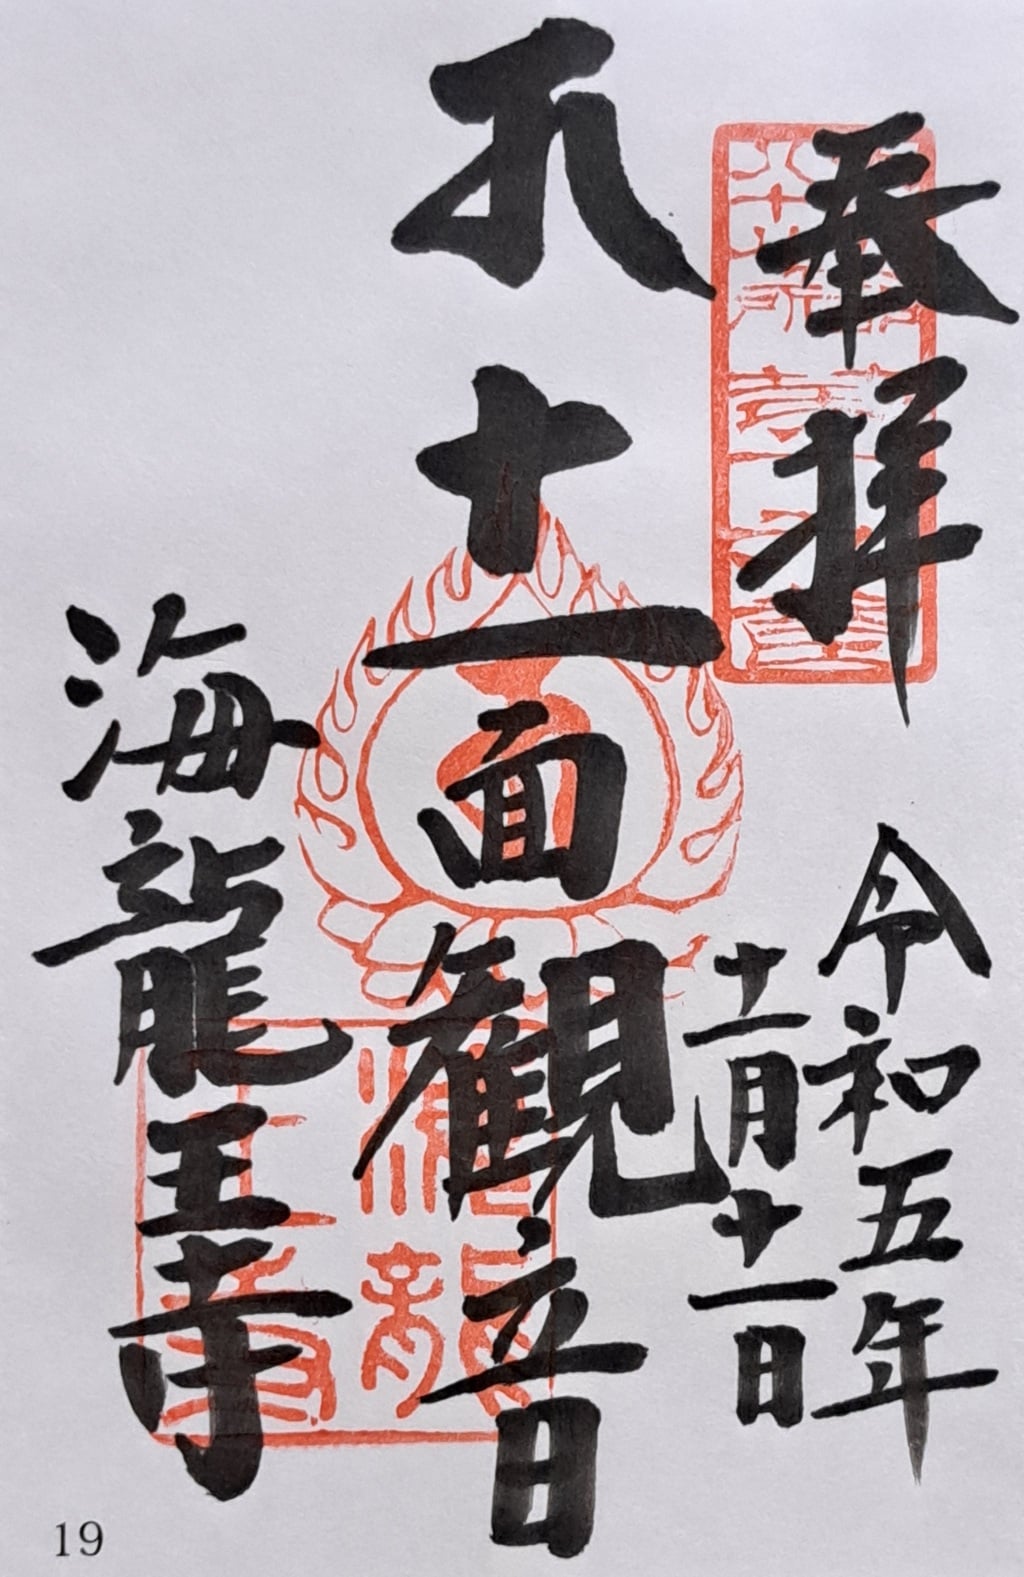 奉拝
令和五年
十一月十一日
十一面観音
海龍王寺
19